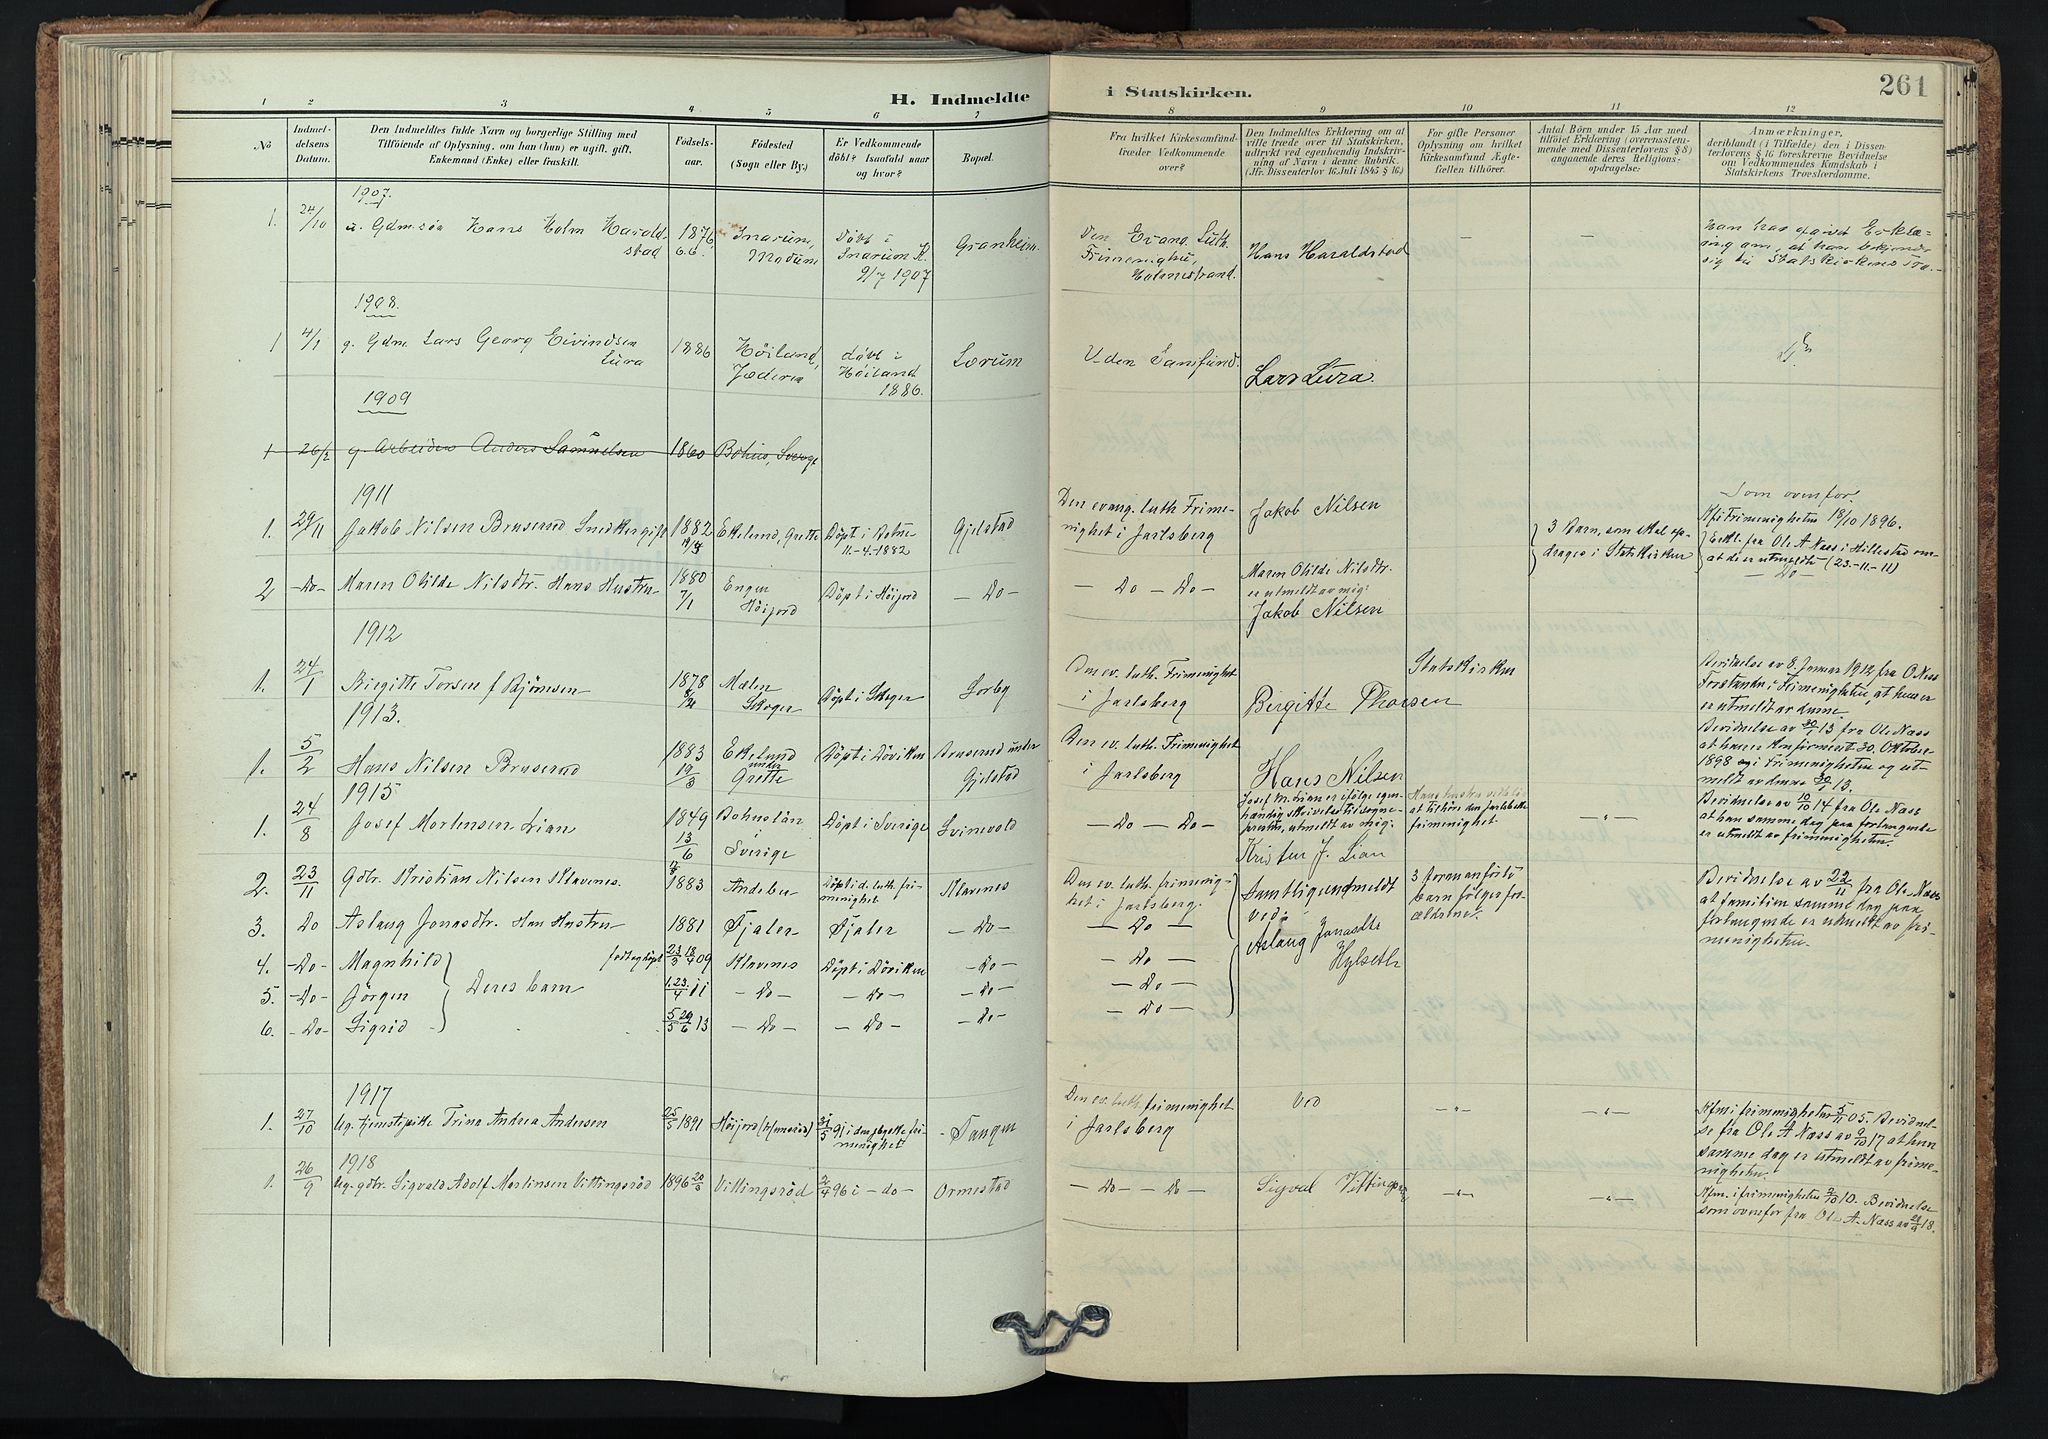 261
H. Indmeldte i Statskirken.
1 2 3 4 5 6 7 8 9 10 11 12
No
Indmel-
delsens
Datum.
Den Indmeldtes fulde Navn og borgerlige Stilling med
Tilföiende af Oplysning, om han (hun) er ugift, gift,
Enkemand (Enke) eller fraskilt.
Födsels-
aar.
Födested
(Sogn eller By.)
Er Vedkommende
döbt? Isaafald naar
og hvor?
Bopæl.
Fra hvilket Kirkesamfund
træder Vedkommende
over?
Den Indmeldtes Erklæring om at
ville træde over til Statskirken,
udtrykt ved egenhændig Indskriv-
ning af Navn i denne Rubrik.
(Jfr. Dissenterlov 16. Juli 1845 § 16.)
For gifte Personer
Oplysning om hvilket
Kirkesamfund Ægte-
fællen tilhörer.
Antal Börn under 15 Aar med
tilföiet Erklæring (overensstem-
mende med Dissenterlovens § 8)
angaaende deres Religions-
opdragelse:
Anmærkninger,
deriblandt (i Tilfælde) den i Dissen-
terlovens § 16 foreskrevne Bevidnelse
om Vedkommendes Kundskab i
Statskirkens Troeslærdomme.
1907.
1. 24/10 u. Gdm.sön Hans Holm Harald-
stad
1876
6.6.
Snarum,
Modum
Döbt i
Snarum K.
9/7 1907
Granheim.
Den Evang. Luth.
Frimenighed,
Holmestrand.
Hans Haraldstad
—
—
Han har afgivet Erklæ-
ring om, at han bekjender
sig til Statskirkens Tro.-
1908.
1 4/1 g. Gdm. Lars Georg Eivindsen
Lura
1886
Höiland,
Jæderen
döbt i
Höiland
1886.
Lærum
Uden Samfund.
Lars Lura.
1909
1 26/2 g. Arbeider Anders Samuelsen 1860 Bohus, Sverge
1911
1. 29/11 Jakob Nilsen Bruserød Snedker gift
1882
Ekelund, Grette
Döpt i Botne
11.-4.-1882
Gjelstad
Den evang. luth Frime-
nighet i Jarlsberg
Jakob Nilsen
3 Barn, som skal op-
drages i Statskirken
Som ovenfor.
Kfi Frimenigheten 18/10 1896.
Erkl. fra Ole A Næss i Hillestad om
at de er utmeldte (23.-11.-11)
2 -Do- Maren Otilde Nilsdtr. Hans Hustru
1880
7/1
Engen
Höijord
Döpt i Höijord
— Do —
— Do — Do —
Maren Otilde Nilsdtr.
er utmeldt av mig:
Jakob Nilsen
— Do —
1912
1. 24/1 Birgitte Torsen f Björnsen
1878
Mælen
Skoger
Döpt i Skoger
Sorby
Den ev. luth. Frimenighet
i Jarlsberg
Birgitte Thorsen
Statskirken
Bevidnelse av 8. Januar 1912 fra O Næss
Forstander i Frimenigheten, at hun er
er utmeldt av denne.
1913.
1. 5/2 Hans Nilsen Bruserød
1883
19/3
Ekelund
under
Grette
Döpt i Döviken
Bruserød under
Gjelstad
Den ev. luth. Frimenighet
i Jarlsberg
Hans Nilsen
Bevidnelse av 30/1 13 fra Ole Næss
at han er konfirmeret 30. Oktober
1898 i Frimenigheten og ut-
meldt av denne 30/1 13.
1915
1. 24/8 Josef Mortensen Lian
1849
13/6
Bohuslän
i
Sverige
Döpt i Sverige
Svinevold
— Do — Do —
Josef M. Lian er ifölge egen-
hændig skrivelse til sogne-
presten, utmeldt av mig:
Kristen J. Lian
Hans hustru vedblir
at tilhöre den Jarlsbergske
frimenighet.
— " —
Bevidnelse av 10/10 14 fra Ole Næss
at han samme dag paa forlangende
er utmeldt av frimenigheten.
2. 23/11 Gdbr. Kristian Nilsen Klavenes.
1883
Andebu
Döpt i d. luth. fri-
menighet
Klavenes
Den ev. luth. frimenig-
het i Jarlsberg.
Samtlige indmeldt
ved:
Aslaug Jonasdtr
Hylseth
barn fölger for-
ældrene.
Bevidnelse av 22/11 fra Ole Næss
at familien samme dag paa
forlangende er utmeldt av fri-
menigheten.
3. Do Aslaug Jonasdtr. Han Hustru 1881 Fjaler Fjaler — Do — — Do —
4. -Do- Magnhild födt og döpt 23/3 18/4 09 Klavenes Döpt i Döviken — Do — — Do —
5. -Do- Jörgen Deres barn 11 — Do — — Do — — Do — — Do —
6. -Do- Sigrid 5/5 29/6 13 — Do — — Do — — Do — — Do —
1917
1. 27/10 Ug. tjenestepike Trina Andrea Andersen
25/5 1891
Höijord
31/5 91 i den jbgske fri-
menighet
Tangen
Den ev. luth. frimenighet
i Jarlsberg
Ved
— " —
— " —
Kfm i frimenigheten 5/11 05. Bevidnel-
se fra Ole A Næss av 9/10 17 at hun
samme dag er utmeldt av frime-
nigheten.
1918
1. 26/9 Ug. gdbr. Sigvald Adolf Martinsen Vittingsröd
1896 20/3
Vittingsröd
2/4 96 i — do —
Ormestad
— Do — — Do —
Sigval Vittingsrød
— " —
— " —
Kfm. i frimenigheten 2/10 10. Bevidnelse
som ovenfor fra Ole A. Næss av 21/9 18.